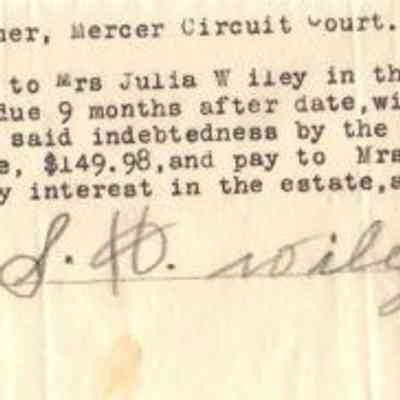 ner, Mercer Circuit Court.
to Mrs Julia W iley in th
due 9 months after date,wi
said indebtedness by the
e, $149.98,and pay to Mrs
y interest in the estate,a
S. H. Wiley